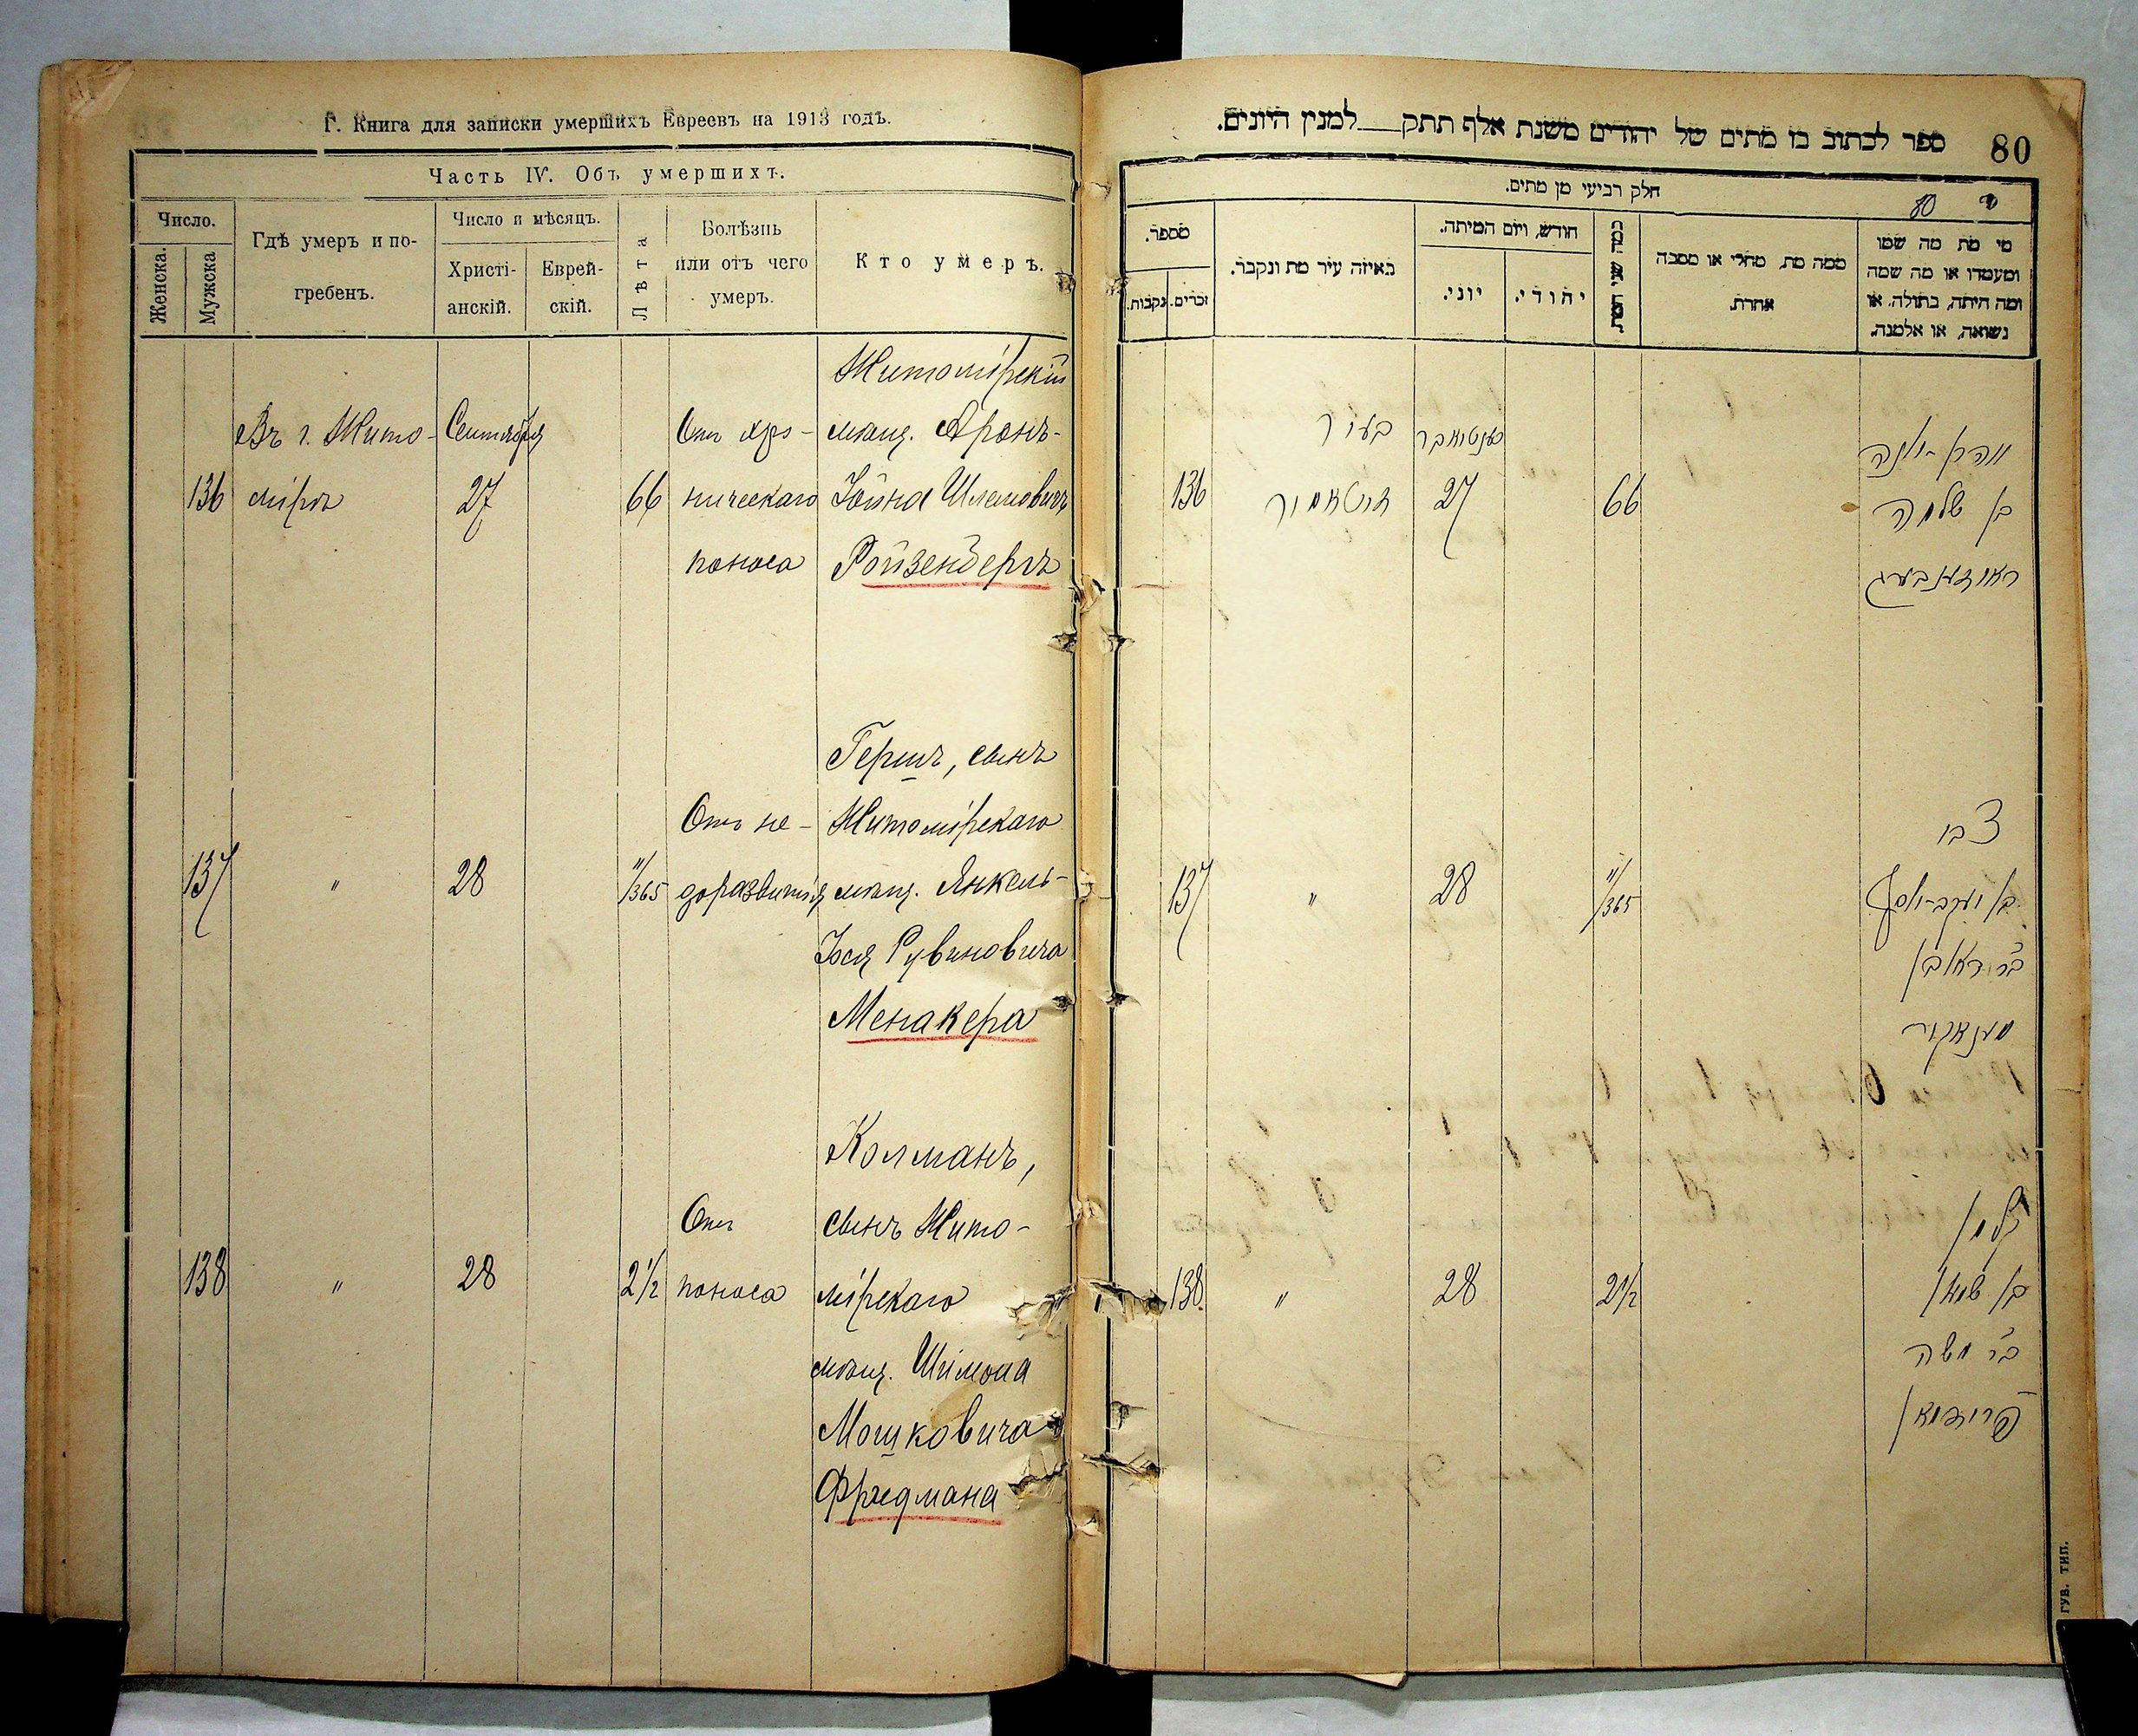 Г. Книга для записки умершихъ Евреевъ на 1913 годъ.
Часть IV. Объ умершихъ.
Число.
Женска.
Мужска
Гдѣ умеръ и по-
гребенъ.
Число и мѣсяцъ.
Христі-
анскій.
Еврей-
скій.
Лѣта
Болѣзнь
или отъ чего
умеръ.
Кто умеръ.
136
Въ г. Жито-
мірѣ
Сентября
27
66
Отъ хро-
ническаго
поноса
Житомірскій
мѣщ. Аронъ-
Іойна Шлемовичъ
Ройзенбергъ
137
"
28
11/365
Отъ не-
доразвитія
Гершъ, сынъ
Житомірскаго
мѣщ. Янкель-
Іося Рувиновича
Менакера
138
"
28
2 1/2
Отъ
поноса
Колманъ,
сынъ Жито-
мірскаго
мѣщ. Шимона
Мошковича
Фридмана
80
ספר לכתוב בו מתים של יהודים משנת אלף תתק למנין היונים.
חלק רביעי מן מתים.
80
מי מת מה שמו
ומעמדו או מה שמה
ומה היתה, בתולה, או
נשואה, או אלמנה.
ממה מת, מחלי או מסבה
אחרת.
כמה שני המת
חודש, ויום המיתה.
יהודי.
יוני.
באיזה עיר מת ונקבר.
מספר.
זכרים.
נקבות.
בן שלמה
ראזענבערג
66
סענטיאבר
27
בעיר
זיטאמיר
136
צבי
בן יעקב-יוסף
ב״ר ראובן
מענאקיר
11/365
28
"
137
קלמן
בן שמעון
ב״ר משה
פרידמאן
2 1/2
28
"
138
ГУБ. ТИП.